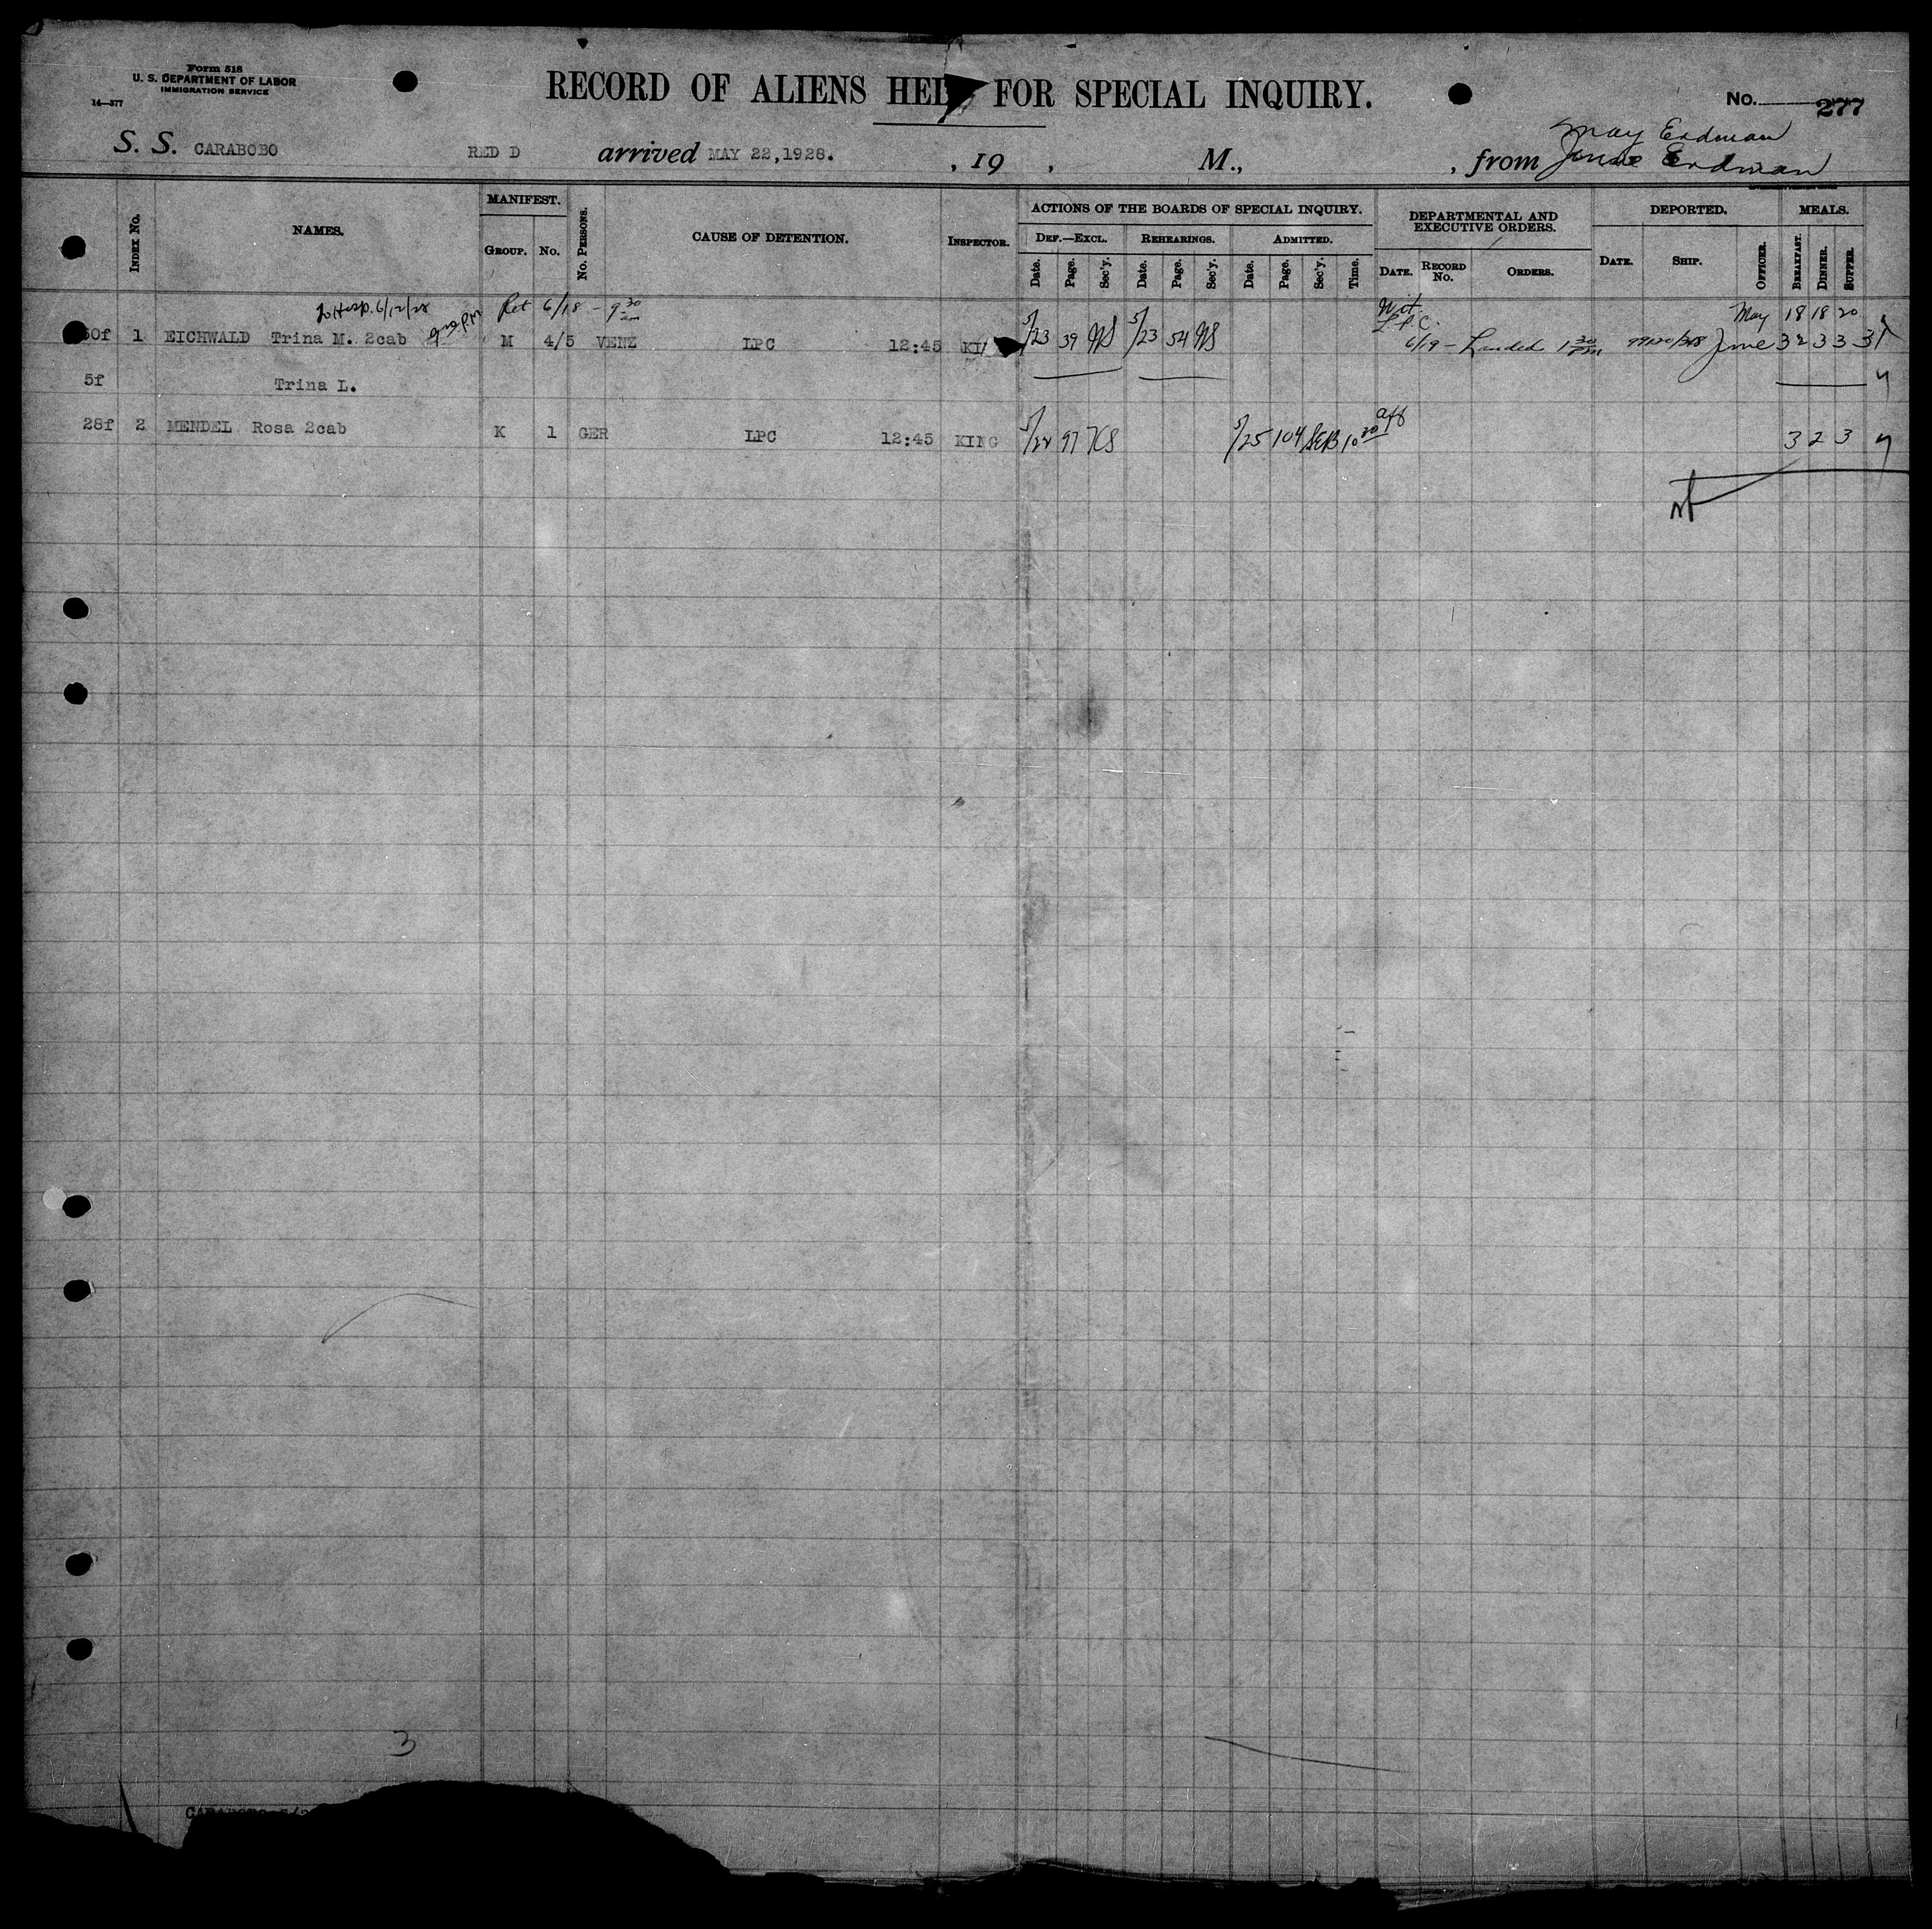 Form 518
U. S. DEPARTMENT OF LABOR
IMMIGRATION SERVICE
14—377
RECORD OF ALIENS HEL FOR SPECIAL INQUIRY.
No. 277
May Erdman
S. S. CARABOBO RED D arrived MAY 22,1928. , 19 , M., , from June Erdman
INDEX No. NAMES. MANIFEST. GROUP. No. No. PERSONS. CAUSE OF DETENTION. INSPECTOR. ACTIONS OF THE BOARDS OF SPECIAL INQUIRY. DEF.—EXCL. Date. Page. Sec'y. REHEARINGS. Date. Page. Sec'y. ADMITTED. Date. Page. Sec'y. Time. DEPARTMENTAL AND EXECUTIVE ORDERS. DATE. RECORD No. ORDERS. DEPORTED. DATE. SHIP. OFFICER. MEALS. BREAKFAST. DINNER. SUPPER.
To Hosp. 6/12/28 Ret 6/18 - 9 30 am Wit. May 18 18 20
L.P.C.
0f 1 EICHWALD Trina M. 2cab M 4/5 VENZ LPC 12:45 KI 5/23 39 NS 5/23 54 NS 6/19 - Landed 1 30 PM June 32 33 31
5f Trina L.
28f 2 MENDEL Rosa 2cab K 1 GER LPC 12:45 KING 5/22 97 KS 5/25 104 SEB 10 20 aff 3 2 3
3